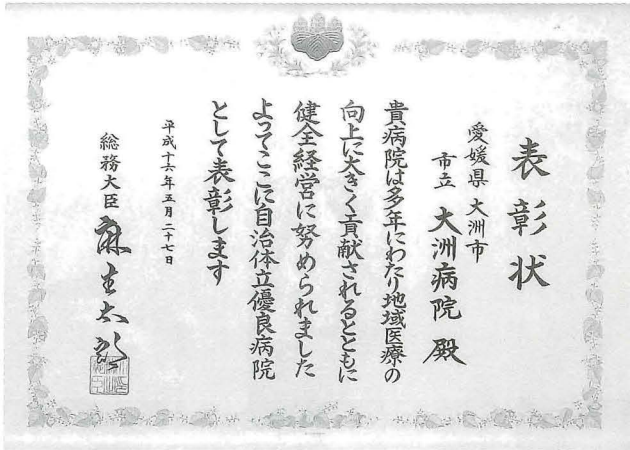 表彰状
愛媛県大洲市
市立 大洲病院 殿
貴病院は多年にわたり地域医療の
向上に大きく貢献されるとともに
健全経営に努められました
よってここに自治体立優良病院
として表彰します
平成十六年五月二十七日
総務大臣 麻生太郎